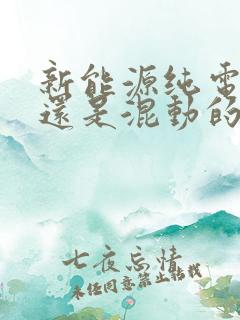 新能源纯電
還是混動的
七夜忘情
未任同意禁止轉載